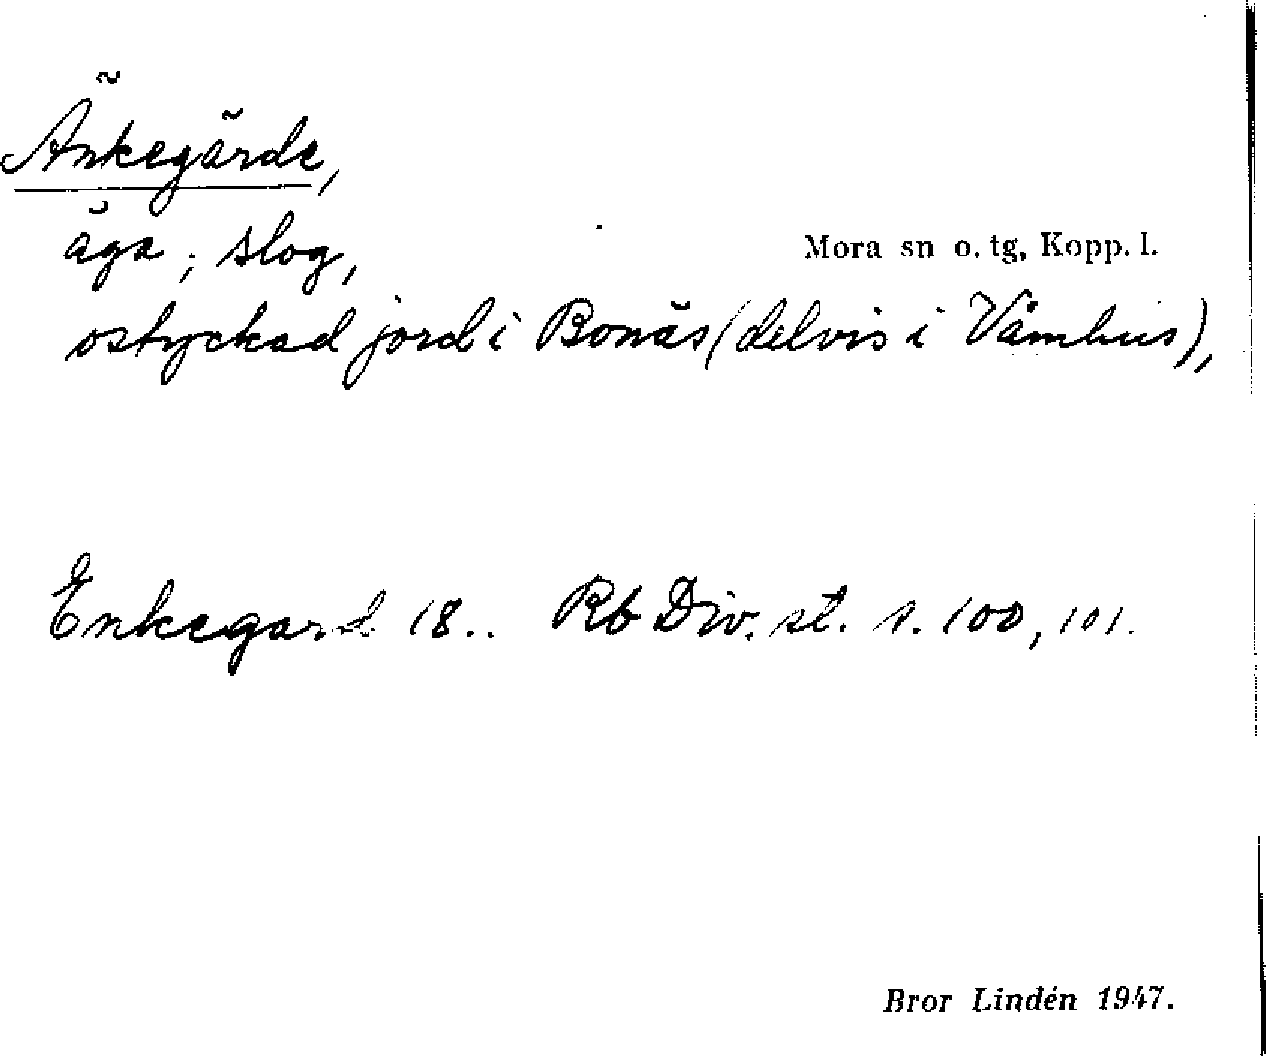 Änkegärde,
äga; slog,
Mora sn o. tg, Kopp. l.
ostyckad jord i Bonäs (delvis i Våmhus),
Enkegard 18.. Rb Div. st. s. 100, 101.
Bror Lindén 1947.